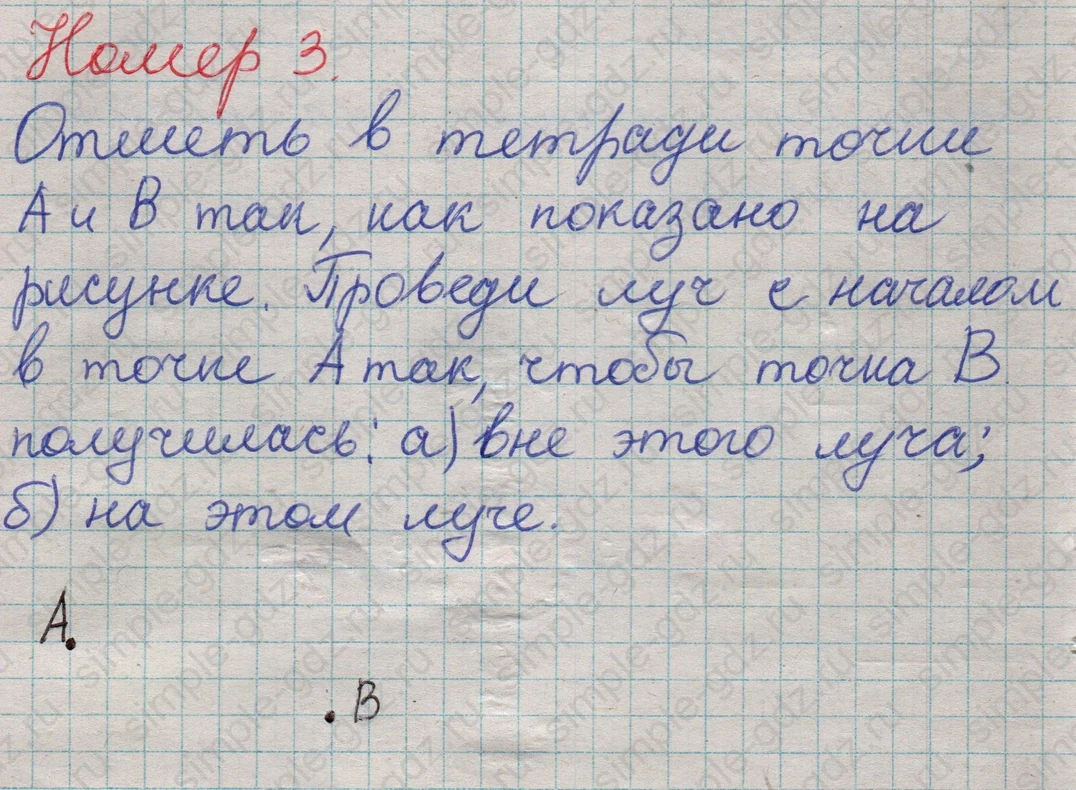 Номер 3.
Отметь в тетради точки
А и В так, как показано на
рисунке. Проведи луч с началом
в точке А так, чтобы точка В
получилась: а) вне этого луча;
б) на этом луче.
А
В
simple-gdz.ru